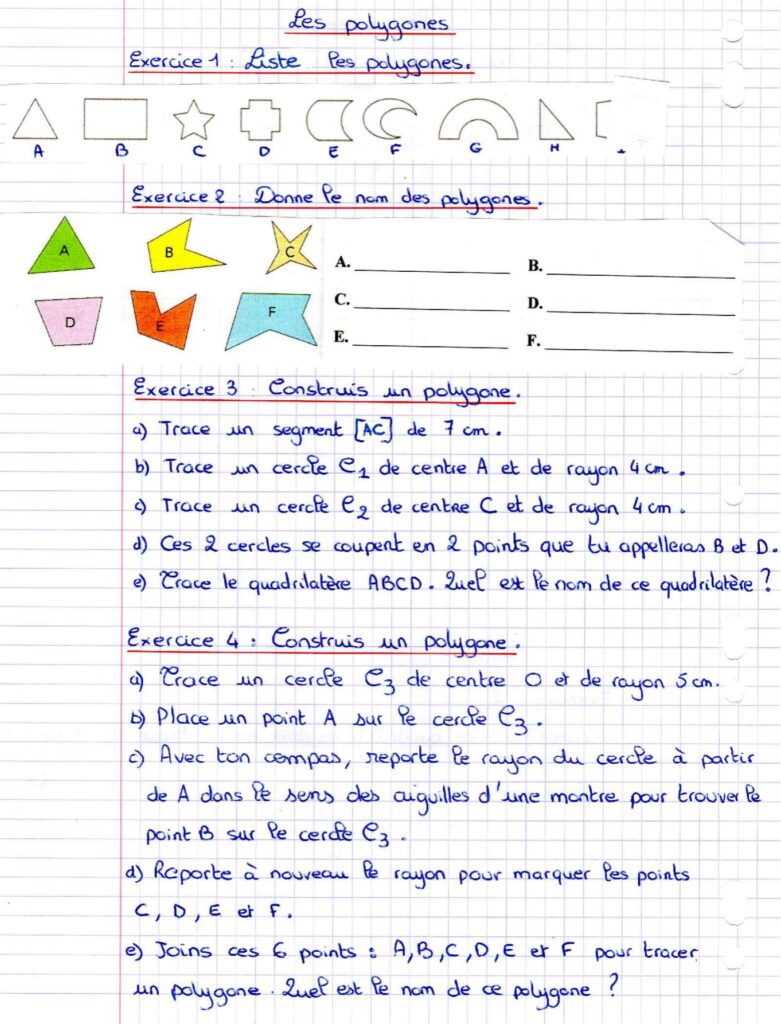 Les polygones
Exercice 1 : Liste les polygones.
A B C D E F G H
Exercice 2 : Donne le nom des polygones.
A B C
D E F
A. B.
C. D.
E. F.
Exercice 3 : Construis un polygone.
a) Trace un segment [AC] de 7 cm.
b) Trace un cercle C1 de centre A et de rayon 4 cm.
c) Trace un cercle C2 de centre C et de rayon 4 cm.
d) Ces 2 cercles se coupent en 2 points que tu appelleras B et D.
e) Trace le quadrilatère ABCD. Quel est le nom de ce quadrilatère ?
Exercice 4 : Construis un polygone.
a) Trace un cercle C3 de centre O et de rayon 5 cm.
b) Place un point A sur le cercle C3.
c) Avec ton compas, reporte le rayon du cercle à partir
de A dans le sens des aiguilles d'une montre pour trouver le
point B sur le cercle C3.
d) Reporte à nouveau le rayon pour marquer les points
C, D, E et F.
e) Joins ces 6 points : A, B, C, D, E et F pour tracer
un polygone. Quel est le nom de ce polygone ?